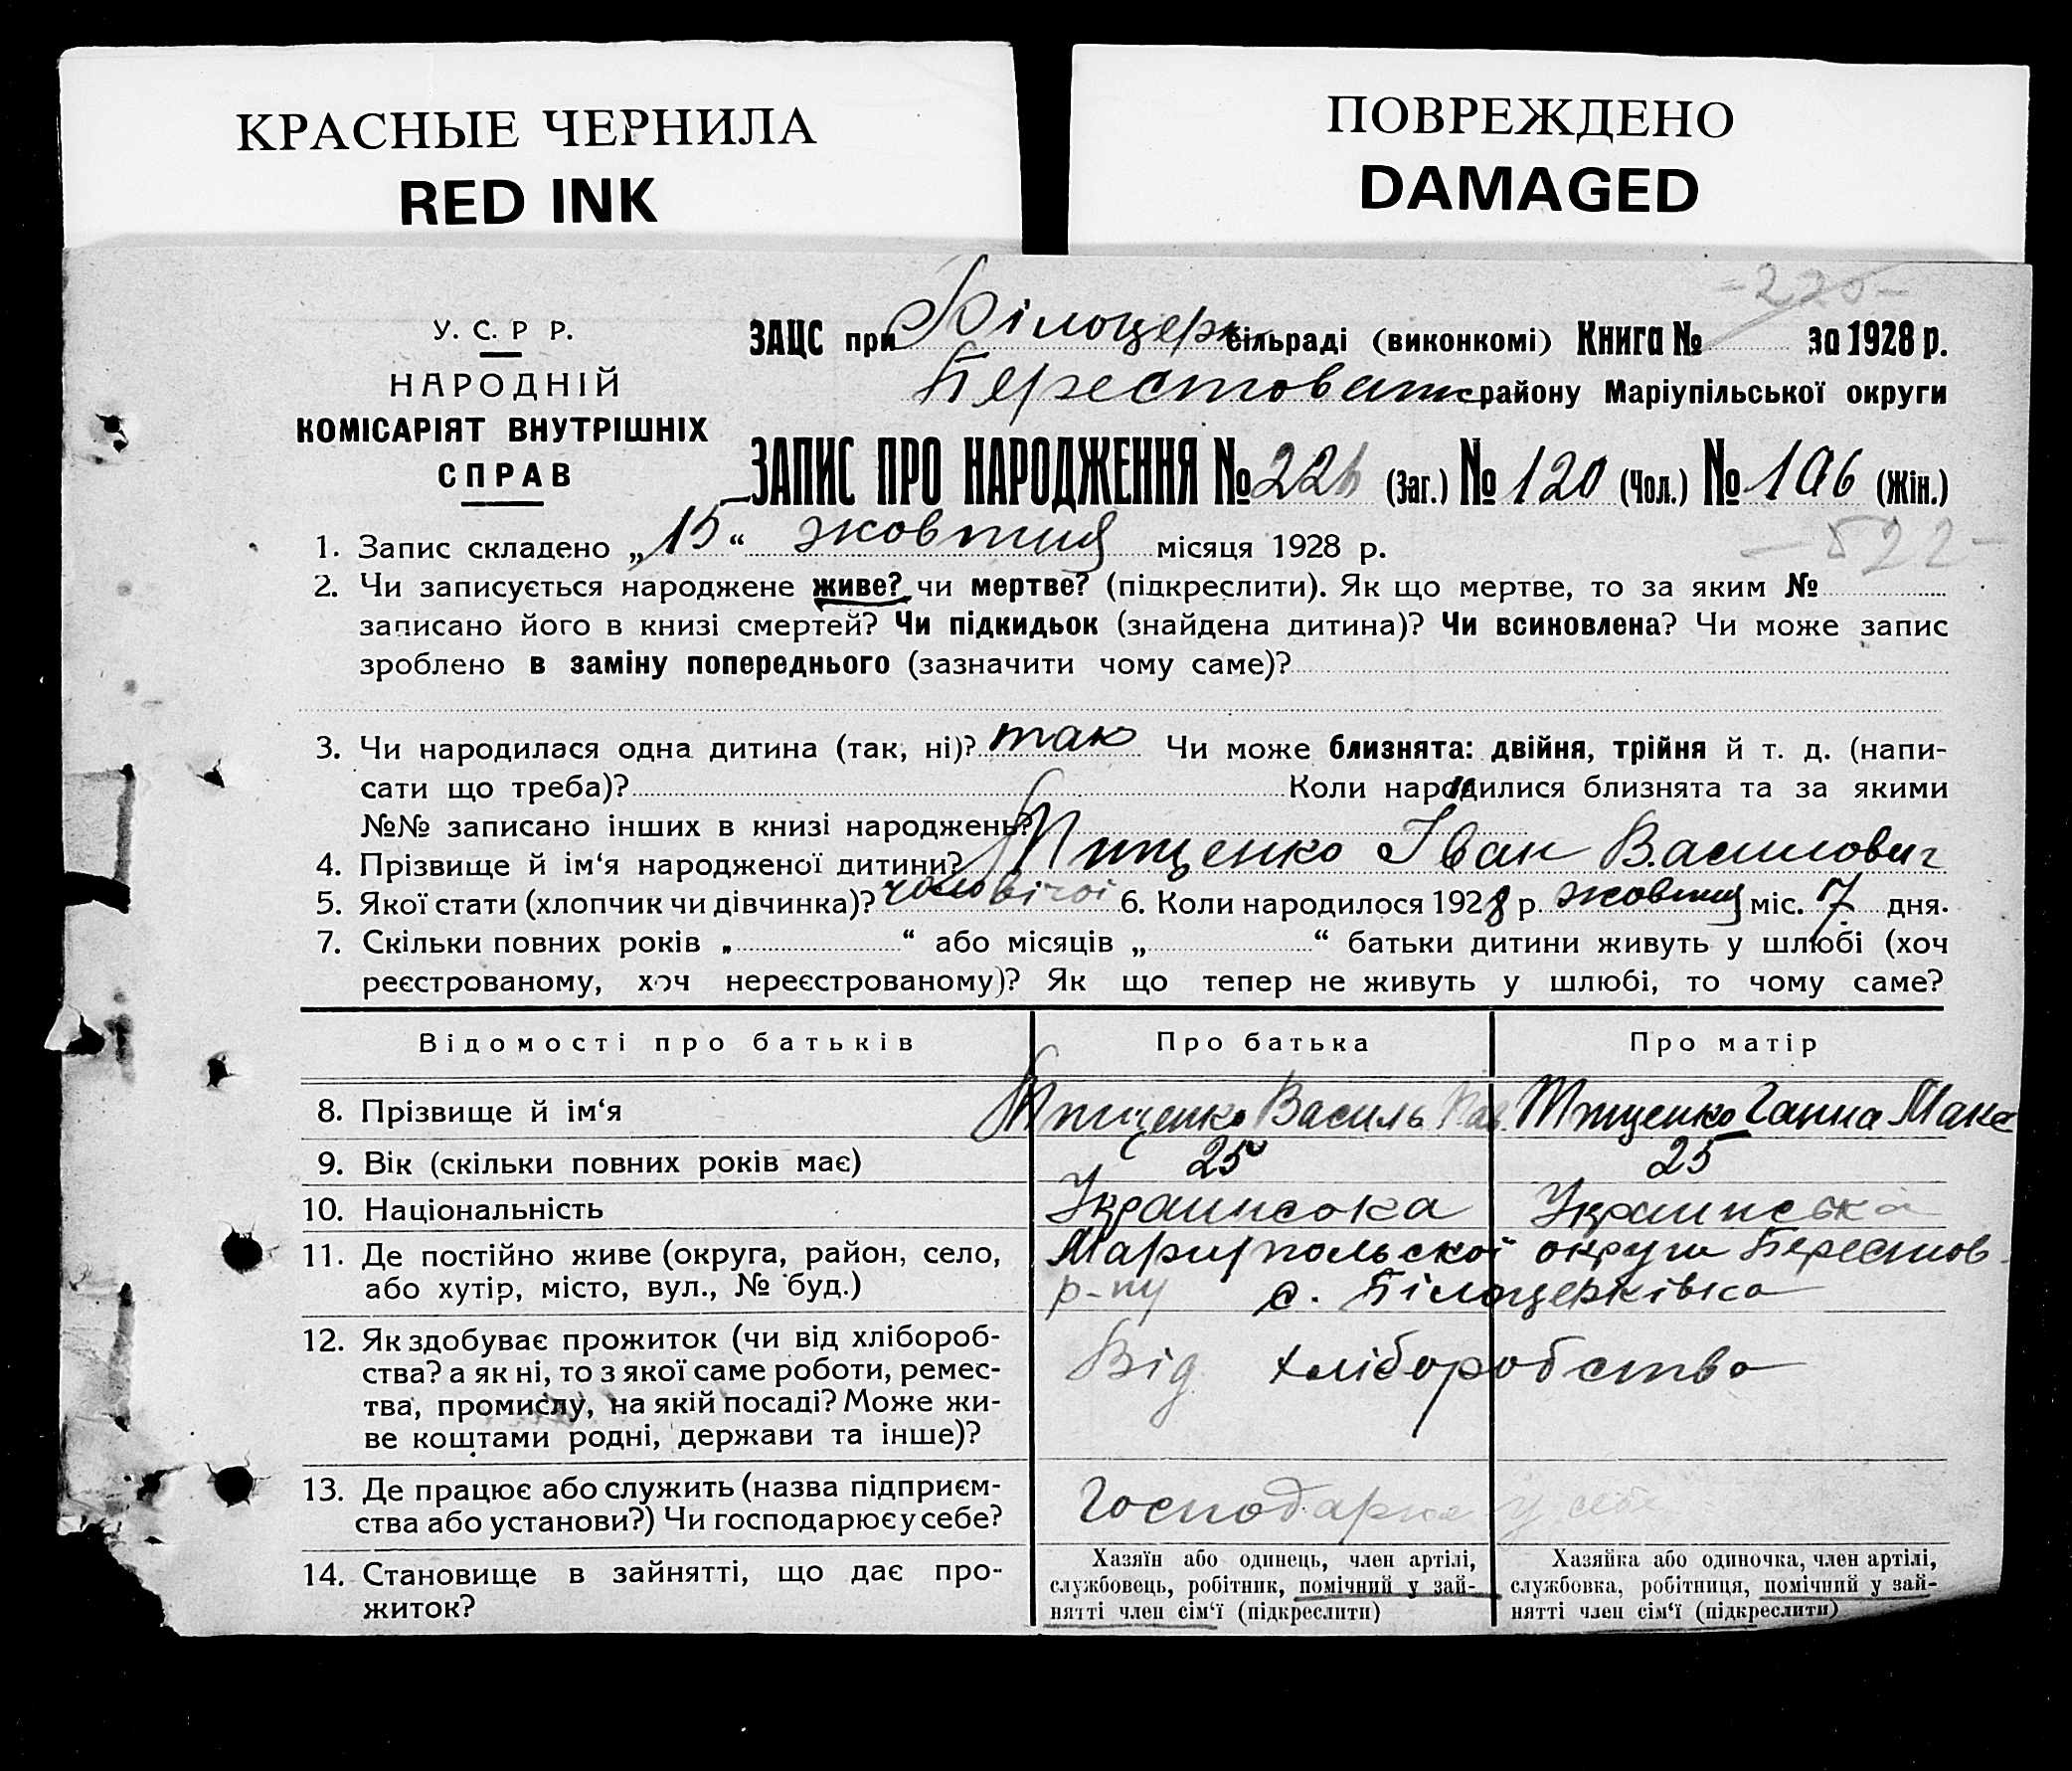 КРАСНЫЕ ЧЕРНИЛА
RED INK
ПОВРЕЖДЕНО
DAMAGED
-220-
У. С. Р Р.
НАРОДНІЙ
КОМІСАРІЯТ ВНУТРІШНІХ
СПРАВ
ЗАЦС при Білоцерк сільраді (виконкомі) Книга № за 1928 р.
Берестоватс району Маріупільської округи
ЗАПИС ПРО НАРОДЖЕННЯ № 226 (Заг.) № 120 (Чол.) № 106 (Жін.)
1. Запис складено „15“ жовтня місяця 1928 р.
-522-
2. Чи записується народжене живе? чи мертве? (підкреслити). Як що мертве, то за яким №
записано його в книзі смертей? Чи підкидьок (знайдена дитина)? Чи всиновлена? Чи може запис
зроблено в заміну попереднього (зазначити чому саме)?
3. Чи народилася одна дитина (так, ні)? так Чи може близнята: двійня, трійня й т. д. (напи-
сати що треба)? Коли народилися близнята та за якими
№№ записано інших в книзі народжень?
4. Прізвище й ім‘я народженої дитини? Тищенко Іван Василович
5. Якої стати (хлопчик чи дівчинка)? чоловічої 6. Коли народилося 1928 р. жовтня міс. 7 дня.
7. Скільки повних років „ “ або місяців „ “ батьки дитини живуть у шлюбі (хоч
реєстрованому, хоч нереєстрованому)? Як що тепер не живуть у шлюбі, то чому саме?
Відомості про батьків Про батька Про матір
8. Прізвище й ім‘я Тищенко Василь Пав. Тищенко Ганна Макс
9. Вік (скільки повних років має) 25 25
10. Національність Украинсока Украинська
11. Де постійно живе (округа, район, село, Мариупольскої округи Берестов-
або хутір, місто, вул., № буд.) р-ну с. Білоцерківка
12. Як здобуває прожиток (чи від хлібороб-
ства? а як ні, то з якої саме роботи, ремес- Від хліборобства
тва, промислу, на якій посаді? Може жи-
ве коштами родні, держави та інше)?
13. Де працює або служить (назва підприєм- Господарює у себе
ства або установи?) Чи господарює у себе?
14. Становище в зайнятті, що дає про-
житок?
Хазяїн або одинець, член артілі,
службовець, робітник, помічний у зай-
нятті член сім‘ї (підкреслити)
Хазяйка або одиночка, член артілі,
службовка, робітниця, помічний у зай-
нятті член сім‘ї (підкреслити)